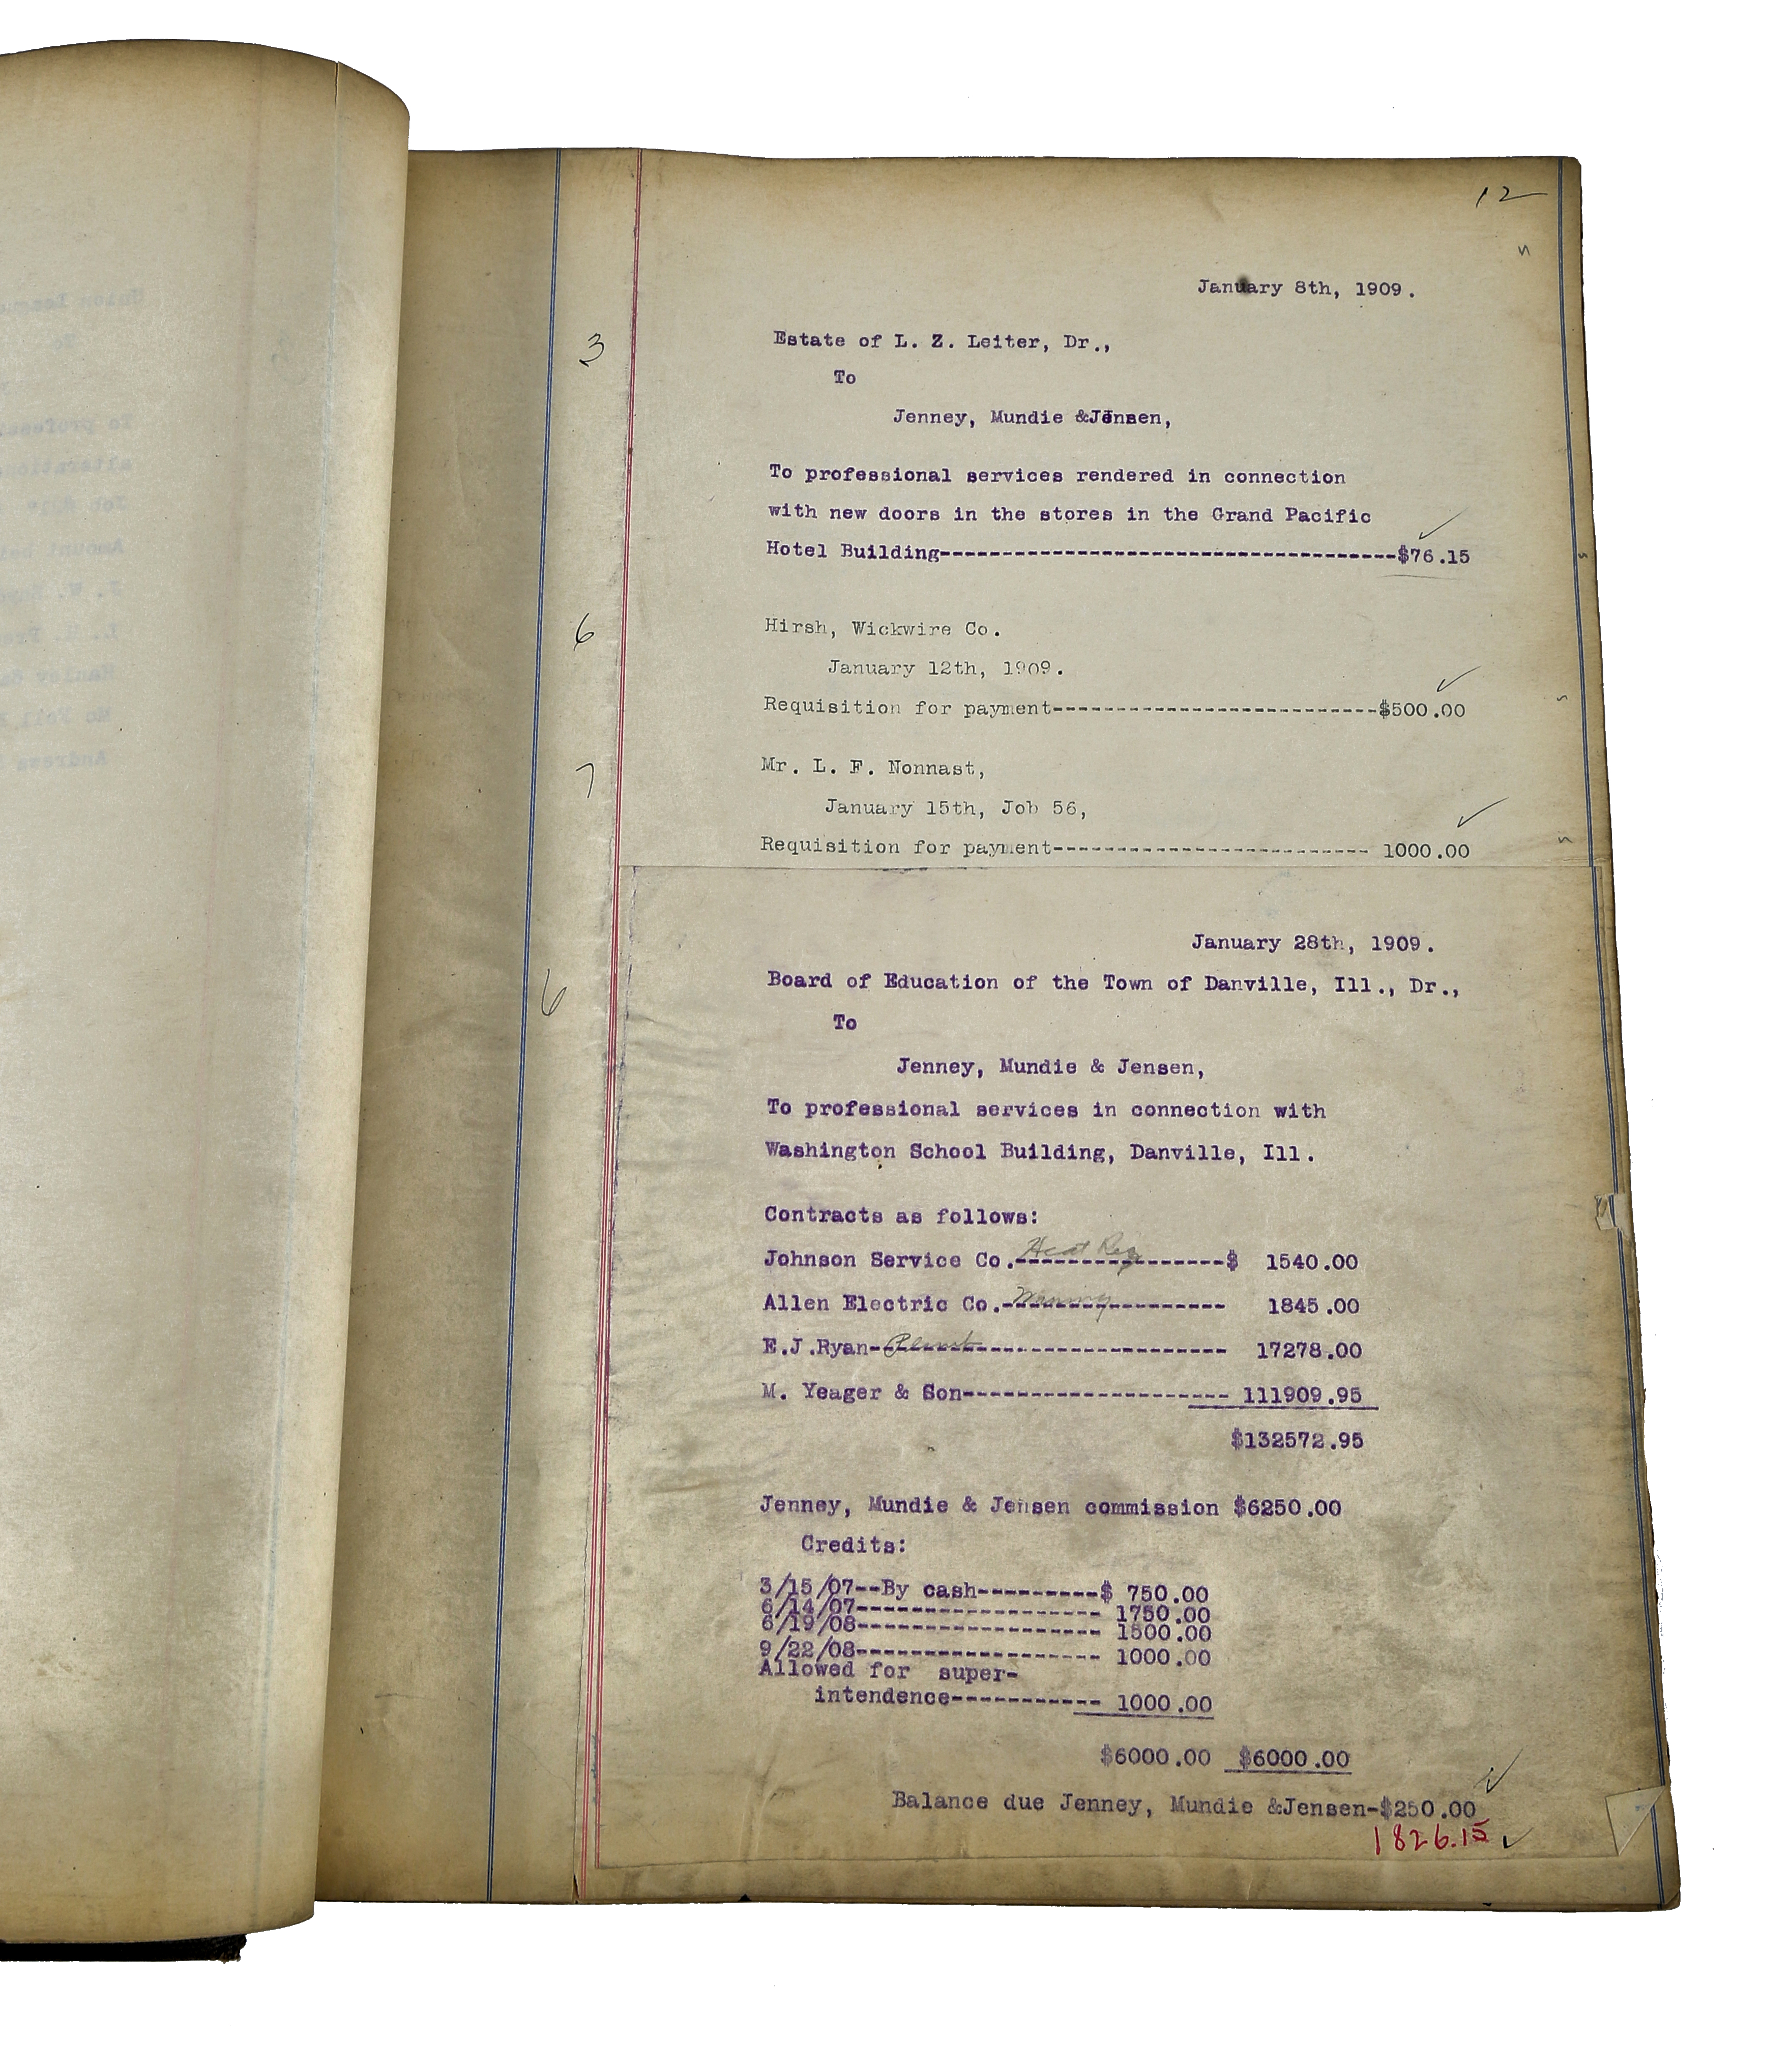 12
January 8th, 1909.
3
Estate of L. Z. Leiter, Dr.,
To
Jenney, Mundie &Jensen,
To professional services rendered in connection
with new doors in the stores in the Grand Pacific
Hotel Building-------------------------------------$76.15
6
Hirsh, Wickwire Co.
January 12th, 1909.
Requisition for payment--------------------------$500.00
7
Mr. L. F. Nonnast,
January 15th, Job 56,
Requisition for payment-------------------------- 1000.00
January 28th, 1909.
6
Board of Education of the Town of Danville, Ill., Dr.,
To
Jenney, Mundie & Jensen,
To professional services in connection with
Washington School Building, Danville, Ill.
Contracts as follows:
Johnson Service Co. Heat Reg ------------------$ 1540.00
Allen Electric Co.------------------- 1845.00
E.J.Ryan------------------------------ 17278.00
M. Yeager & Son---------------------- 111909.95
$132572.95
Jenney, Mundie & Jensen commission $6250.00
Credits:
3/15/07--By cash----------$ 750.00
6/14/07-------------------- 1750.00
6/19/08-------------------- 1500.00
9/22/08-------------------- 1000.00
Allowed for super-
intendence------------ 1000.00
$6000.00 $6000.00
Balance due Jenney, Mundie &Jensen-$250.00
1826.15
To professi
alteration
Amount